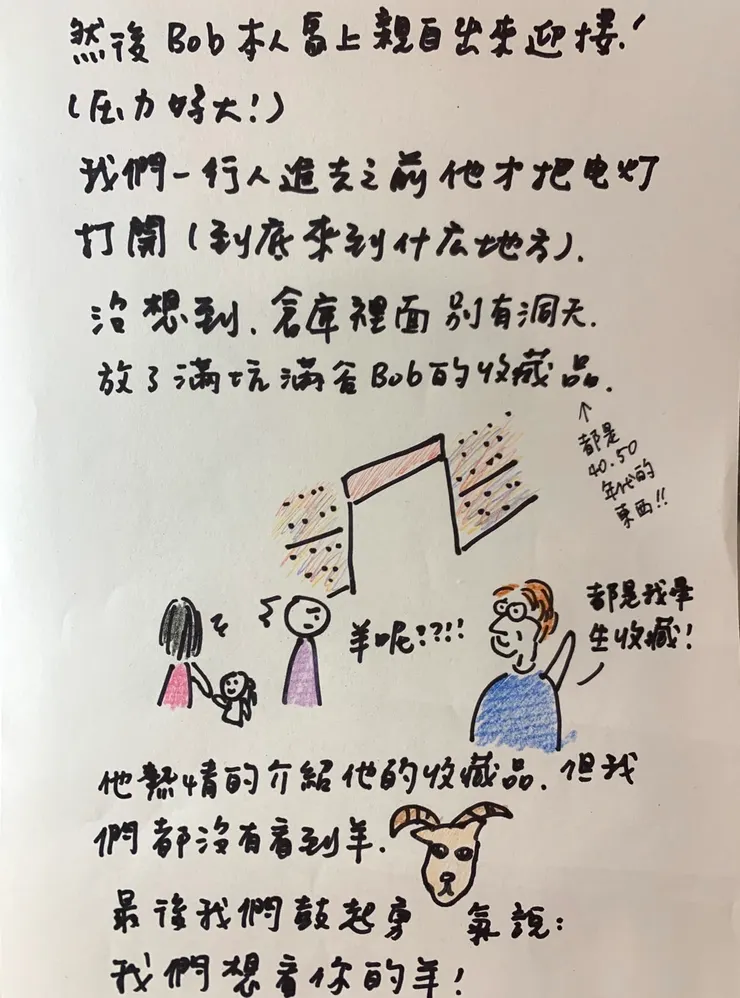 然後Bob本人馬上親自出來迎接!
(压力好大!)
我們一行人進去之前他才把电灯
打開(到底來到什広地方).
沒想到、倉庫裡面別有洞天.
放了滿坑滿谷Bob的收藏品.
↑
都是
40.50
年代的
東西!!
羊呢!??!!
都是我畢
生收藏!
他熱情的介紹他的收藏品、但我
們都沒有看到羊.
最後我們鼓起勇氣說:
我們想看你的羊!